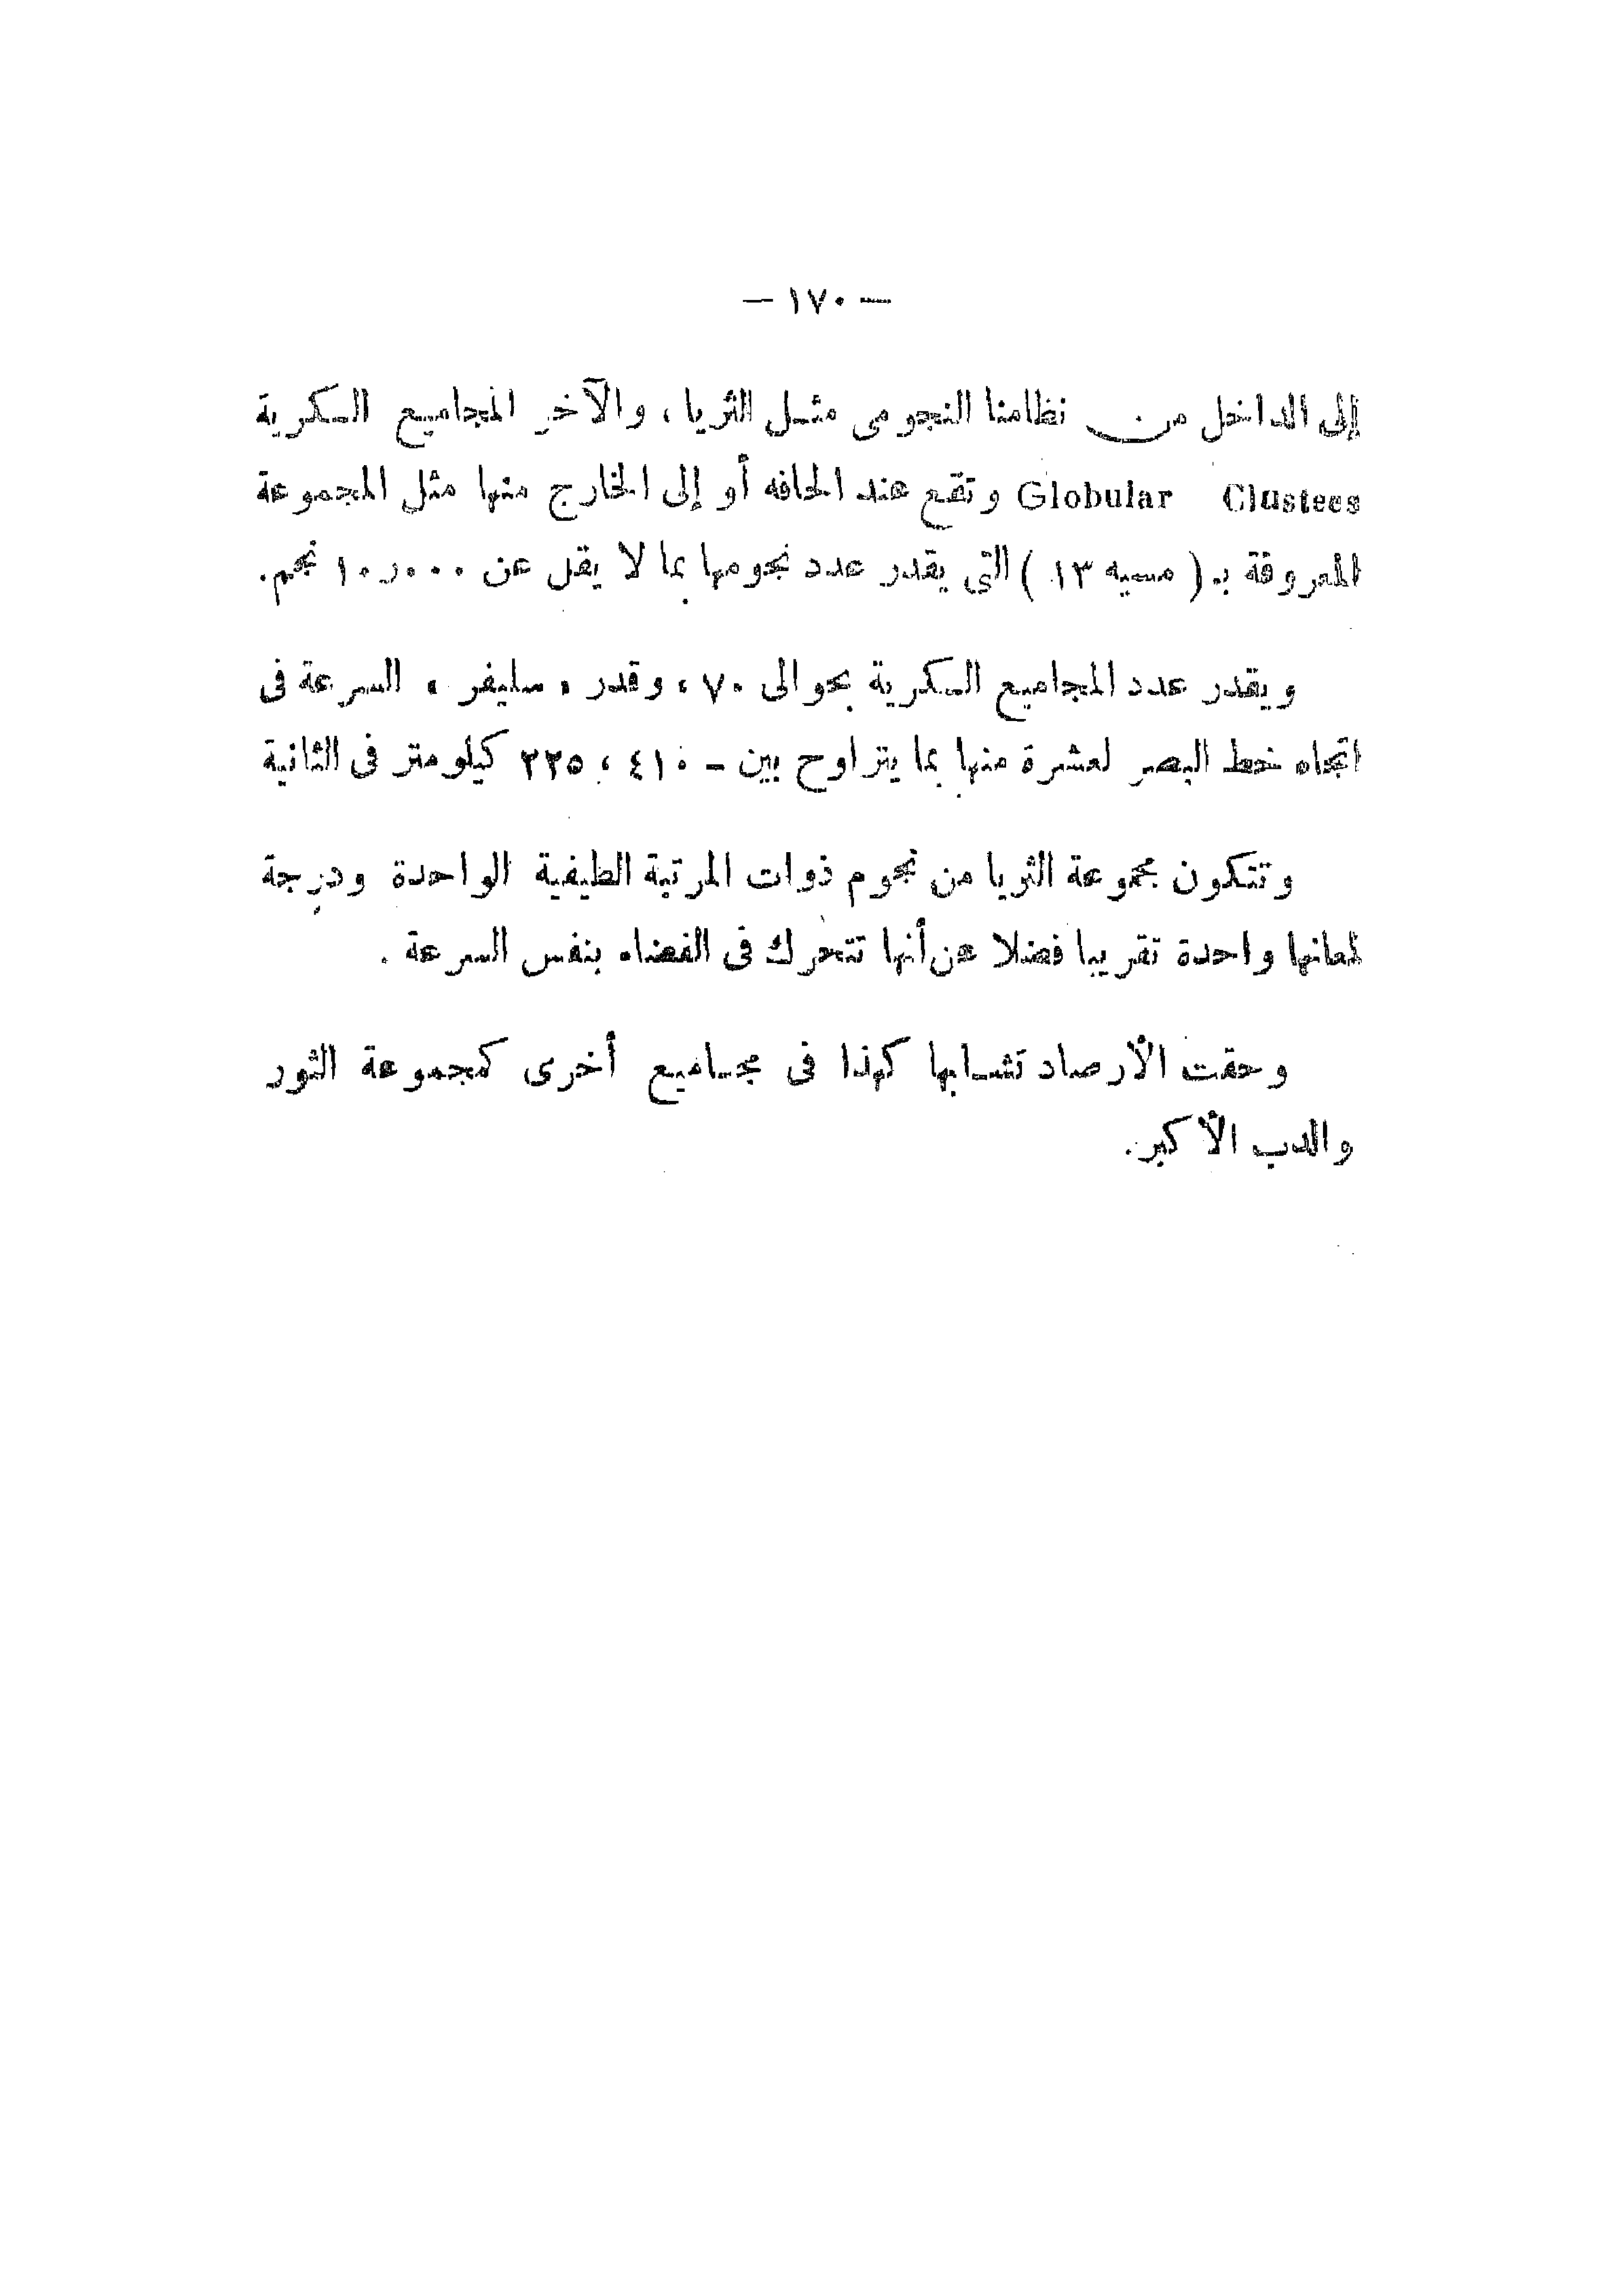 — ١٧٠ —
إلى الداخل من نظامنا النجومى مثل الثريا ، والآخر المجاميع الكرية
Globular Clustees وتقع عند الحافه أو إلى الخارج منها مثل المجموعة
المعروفة بـ ( مسيه ١٣ ) التى يقدر عدد نجومها بما لا يقل عن ١٠ر٠٠٠ نجم .
ويقدر عدد المجاميع الكرية بحوالى ٧٠ ، وقدر « سليفر » السرعة فى
اتجاه خط البصر لعشرة منها بما يتراوح بين – ٤١٠ ، ٢٢٥ كيلومتر فى الثانية
وتتكون مجموعة الثريا من نجوم ذوات المرتبة الطيفية الواحدة ودرجة
لمعانها واحدة تقريبا فضلا عن أنها تتحرك فى الفضاء بنفس السرعة .
وحققت الأرصاد تشابها كهذا فى مجاميع أخرى كمجموعة الثور
والدب الأكبر .